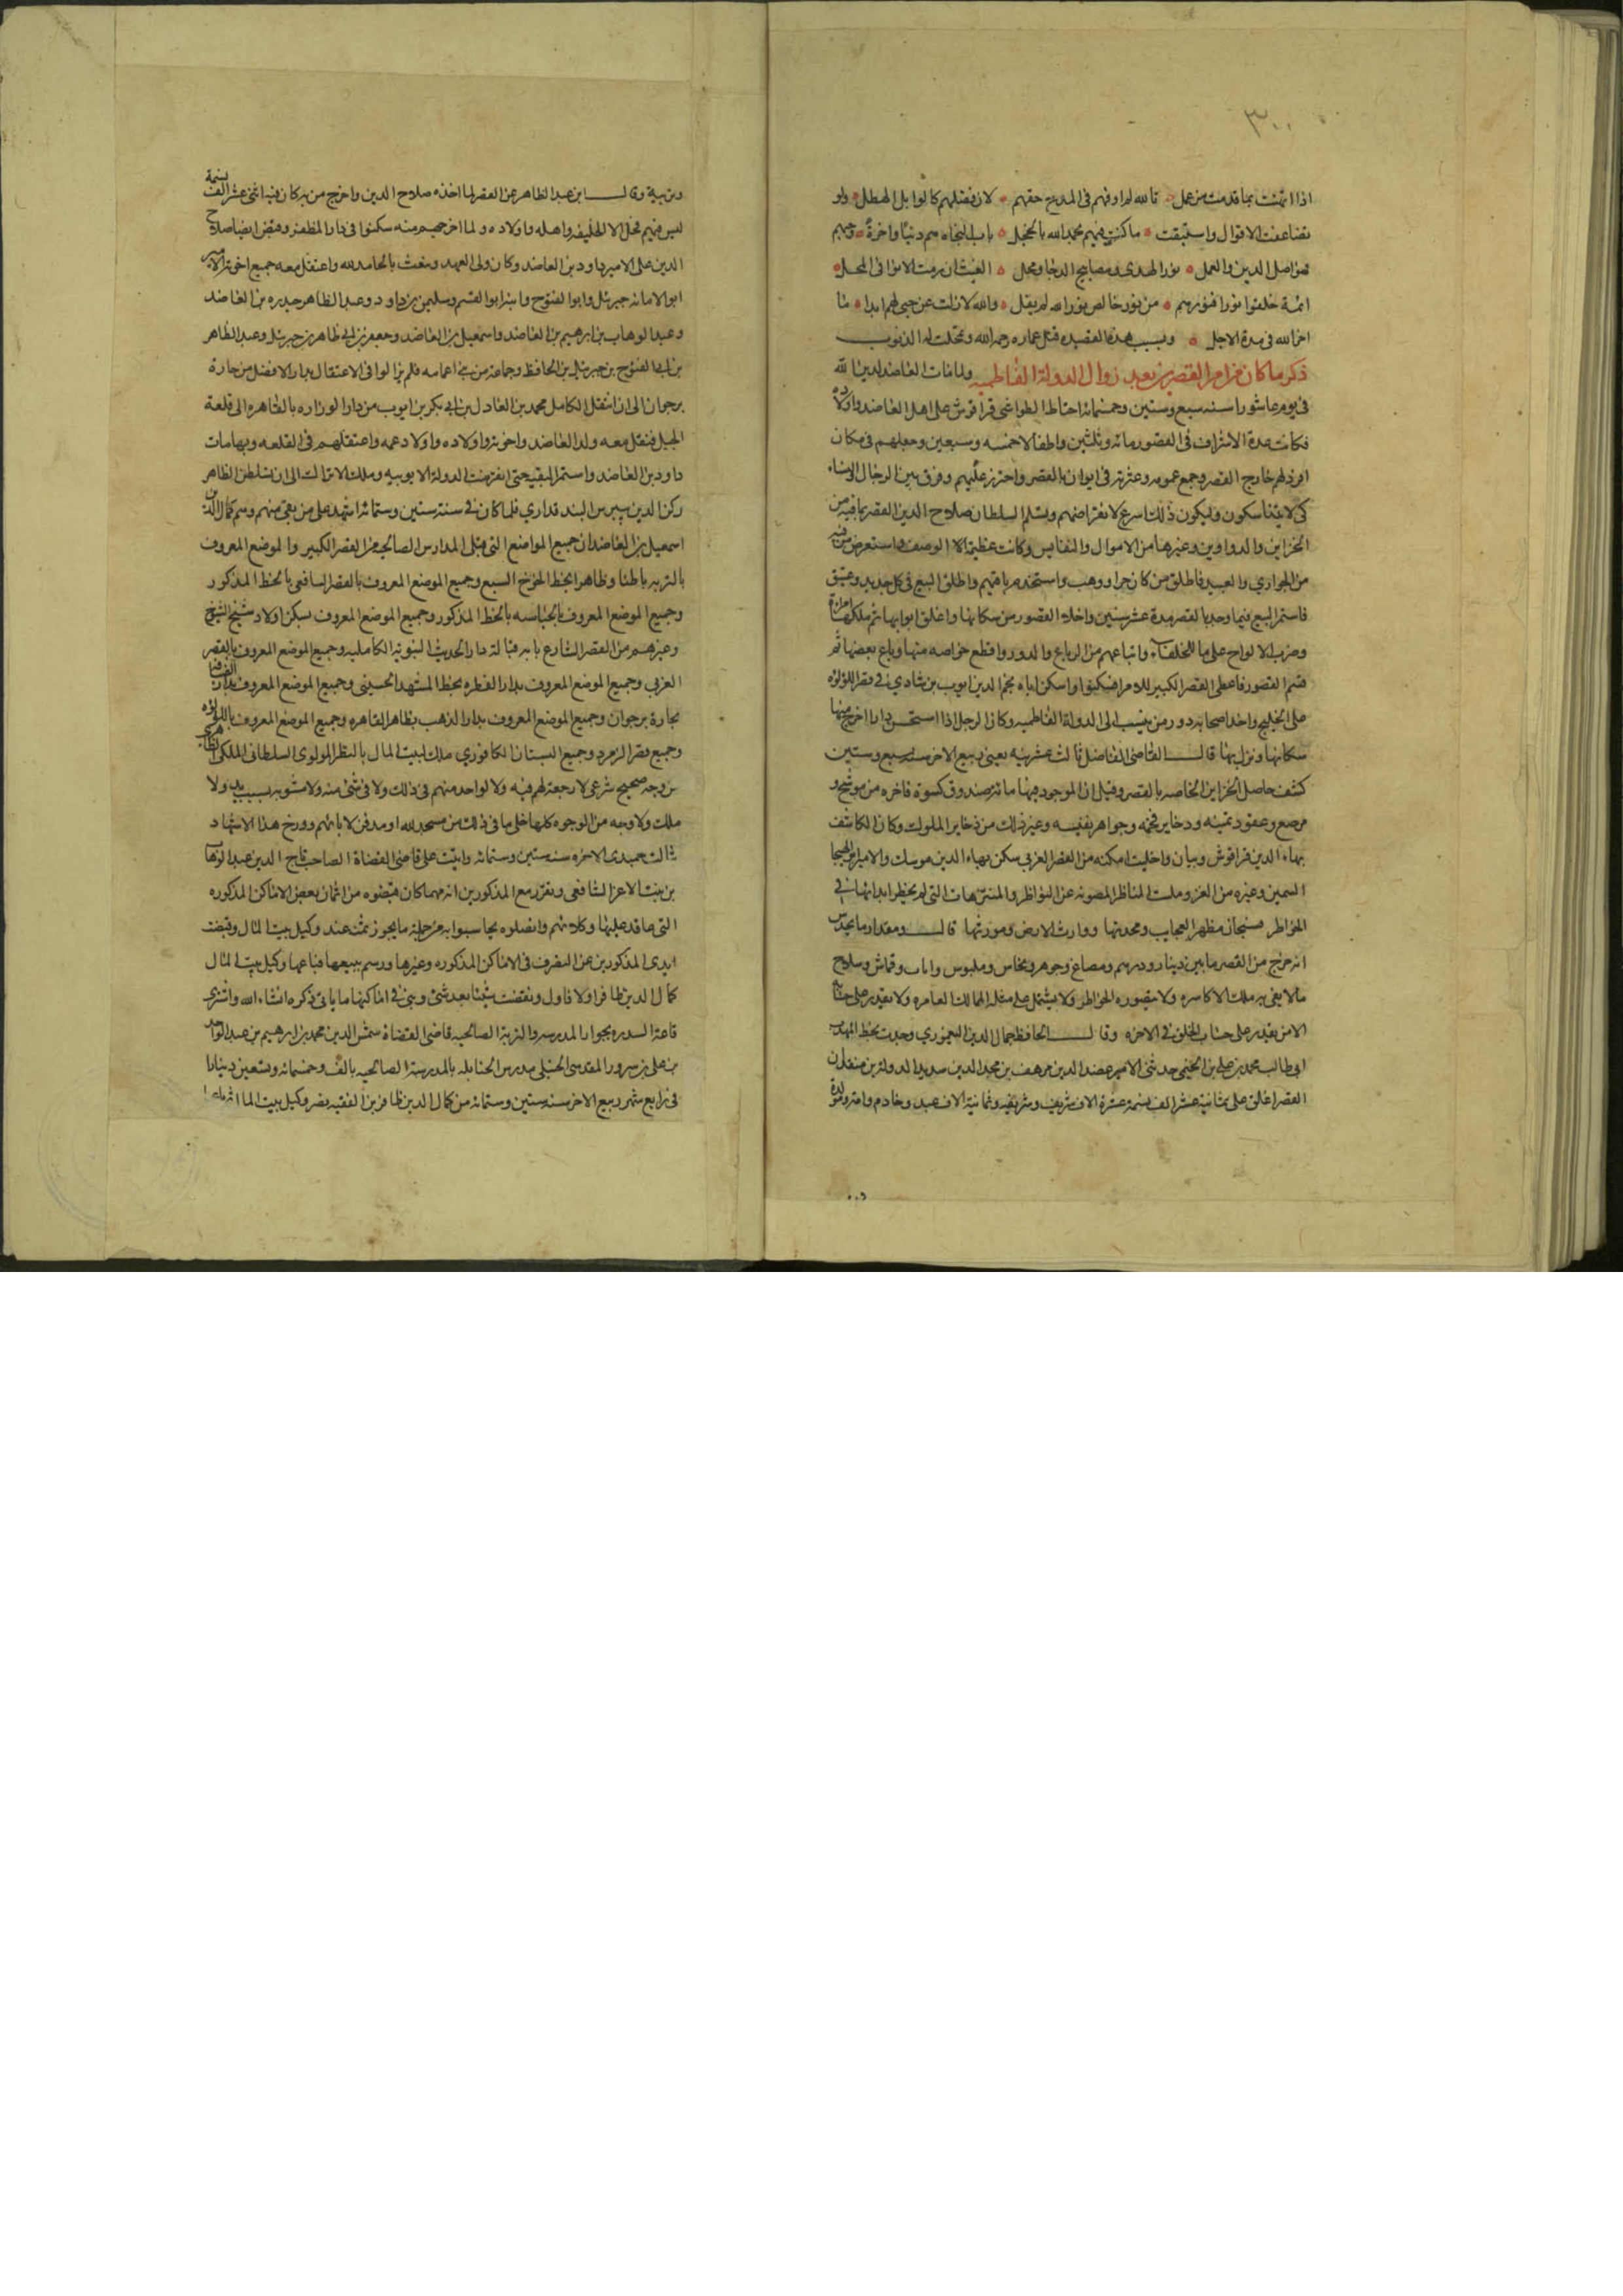 ٣٠٠
اذا ارتهنت بما قدمت من عمل تالله لم اوفهم فى المدح حقهم لان فضلهم كالوابل الهطل ولو
تضاعفت الاقوال واستبقت ما كنت فيهم بحمد الله بالخجل باب النجاه هم دنيا واخرة وحبهم
فهو اصل الدين والعمل نور الهدى ومصابيح الدجا ومحل الغيث ان ربت الانوا فى المحل
ائمة خلقوا نورا فنورهم من نور خالص نور الله لم يفل والله لا زلت عن حبى لهم ابدا ما
اخر الله فى مدة الاجل وبسبب هذه القصيده قتل عماره رحمه الله وتمحلت له الذنوب
ذكر ما كان من امر القصرين بعد زوال الدولة الفاطمية ولما مات العاضد لدين الله
فى يوم عاشورا سنه سبع وستين وخمسمائة احتاط الطواشى قراقوش على اهل العاضد واولاده
فكانت عدة الاشراف فى القصور مائه وثلثين والاطفال خمسه وسبعين وجعلهم فى مكان
افرد لهم خارج القصر وجمع عمومه وعشرته فى ايوان بالقصر واحترز عليهم وفرق بين الرجال والنساء
كى لا يتناسلون وليكون ذلك اسرع لانقراضهم وتسلم السلطان صلاح الدين القصر بما فيه من
الخزاين والدواوين وغيرها من الاموال والنفايس وكانت عظيمة الوصف واستعرض من فيه
من الجوارى والعبيد فاطلق من كان حرا ووهب واستخدم باقيهم واطلق البيع فى كل جديد وعتيق
فاستمر البيع فيما وجد بالقصر مدة عشر سنين واخلا القصور من سكانها واغلق ابوابها ثم ملكها امراءه
وضرب الالواح على ما للخلفاء واتباعهم من الرباع والدور واقطع خواصه منها وباع بعضها ثم
قسم القصور فاعطى القصر الكبير للامرا فسكنوا واسكن اباه نجم الدين ايوب بن شادي فى قصر اللؤلؤه
على الخليج واخذ اصحابه دور من ينسب الى الدولة الفاطميه وكان الرجل اذا استحسن دارا اخرج منها
سكانها ونزل بها قال القاضى الفاضل ثالث عشريه يعنى ربيع الاخر سنه سبع وستين
كشف حاصل الخزاين الخاصه بالقصر وقيل ان الموجود فيها مائة صندوق كسوة فاخره من موشح و
مرصع وعقود ثمينه وذخاير فخمه وجواهر نفيسه وغير ذلك من ذخاير الملوك وكان الكاشف
بهاء الدين قراقوش وبيان واخليت امكنه من القصر الغربى سكن بها الامير موسك والامير ابو الهيجا
السمين وغيره من الغز وملت المناظر المصونه عن النواظر والمنتزهات التى لم يخطر ابدا لها فى
الخواطر فسبحان مظهر العجايب ومحدثها ووارث الارض ومورثها قال ومقدار ما يحدس
انه خرج من القصر ما بين دينار ودرهم ومصاغ وجوهر ونحاس وملبوس واثاث وقماش وسلاح
ما لا يفى به ملك الاكاسره ولا يتصوره الخواطر ولا يشتمل على مثله الممالك العامره ولا يقدر على حسابه
الا من يقدر على حساب الخلق فى الاخره وقال الحافظ جمال الدين اليغموري وجدت بخط المهذب
ابى طالب محمد بن على بن الخيمى حدثنى الامير عضد الدين مرهف بن مجد الدين سديد الدولة بن منقذ ان
القصر اغلق على ثمانية عشر الف نسمة عشرة الاف شريف وشريفه وثمانية الاف عبد وخادم وامة ومولدة
وتربية وقال ابن عبد الظاهر عن القصر لما اخذه صلاح الدين واخرج من به كان فيه اثنى عشر الف نسمة
ليس فيهم فحل الا الخليفه واهله واولاده ولما اخرجهم منه سكنوا فى دار المظفر وقبض ايضا صلاح
الدين على الامير داود بن العاضد وكان ولى العهد وينعت بالحامد لله واعتقل معه جميع اخوته الامير
ابو الامانه جبريل وابو الفتوح وابنه ابو القسم وسليمن بن داود وعبد الظاهر حيدره بن العاضد
وعبد الوهاب بن ابرهيم بن العاضد واسمعيل بن العاضد وجعفر بن ابى ظاهر بن جبريل وعبد الظاهر
بن ابى الفتوح بن جبريل بن الحافظ وجماعة من بنى اعمامه فلم يزالوا فى الاعتقال بدار الافضل من حارة
برجوان الى ان انتقل الكامل محمد بن العادل بن ابى بكر بن ايوب من دار الوزاره بالقاهره الى قلعة
الجبل فنقل معه ولد العاضد واخوته واولاده واولاد عمه واعتقلهم فى القلعه وبها مات
داود بن العاضد واستمر البقية حتى انقرضت الدولة الايوبيه وملك الاتراك الى ان تسلطن الظاهر
ركن الدين بيبرس البندقداري فلما كان فى سنة ستين وستمائة اشهد على من بقى منهم وهم كمال الدين
اسمعيل بن العاضد ان جميع المواضع التى قبلى المدارس الصالحيه من القصر الكبير والموضع المعروف
بالتربه باطنا وظاهرا بخط الخوخ السبع وجميع الموضع المعروف بالقصر اليافعى بالخط المذكور
وجميع الموضع المعروف بالجباسه بالخط المذكور وجميع الموضع المعروف بسكن اولاد شيخ الشيوخ
وغيرهم من القصر الشارع بابه قبالة دار الحديث النبوية الكامليه وجميع الموضع المعروف بالقصر
الغربي وجميع الموضع المعروف بدار الفطره بخط المشهد الحسينى وجميع الموضع المعروف بدار الضيافة
بحارة برجوان وجميع الموضع المعروف بدار الذهب بظاهر القاهره وجميع الموضع المعروف باللؤلؤه
وجميع قصر الزمرد وجميع البستان الكافوري ملك لبيت المال بالنظر المولوى السلطانى الملكى الظاهرى
من وجه صحيح شرعى لا رجعة لهم فيه ولا لواحد منهم فى ذلك ولا فى شئ منه ولا مثنويه بسبب يد ولا
ملك ولا وجه من الوجوه كلها خلى ما فى ذلك من مسجد لله او مدفن لابائهم وورخ هذا الاشهاد
ثالث جمدى الاخره سنه ستين وستمائه واثبت على قاضى القضاة الصاحب تاج الدين عبد الوهاب
بن بنت الاعز الشافعى وتقرر مع المذكورين انه مهما كان قبضوه من اثمان بعض الاماكن المذكوره
التى عاقد عليها وكلائهم واتصلوه يحاسبوا به من جملة ما يجوز ثمنه عند وكيل بيت المال وقبضت
ايدى المذكورين عن التصرف فى الاماكن المذكوره وغيرها ورسم ببيعها فباعها وكيل بيت المال
كمال الدين ظافر اولا فاول ونقضت شيئا بعد شئ وبنى فى اماكنها ما ياتى ذكره انشاء الله واشترى
قاعة السدره بجوار المدرسه والتربة الصالحيه قاضى القضاة شمس الدين محمد بن ابرهيم بن عبد الواحد
بن على بن سرور المقدسى الحنبلى مدرس الحنابله بالمدرسة الصالحيه بالف وخمسمائه وتسعين دينارا
فى رابع شهر ربيع الاخر سنه ستين وستمائه من كمال الدين ظافر بن الفقيه نصر وكيل بيت المال